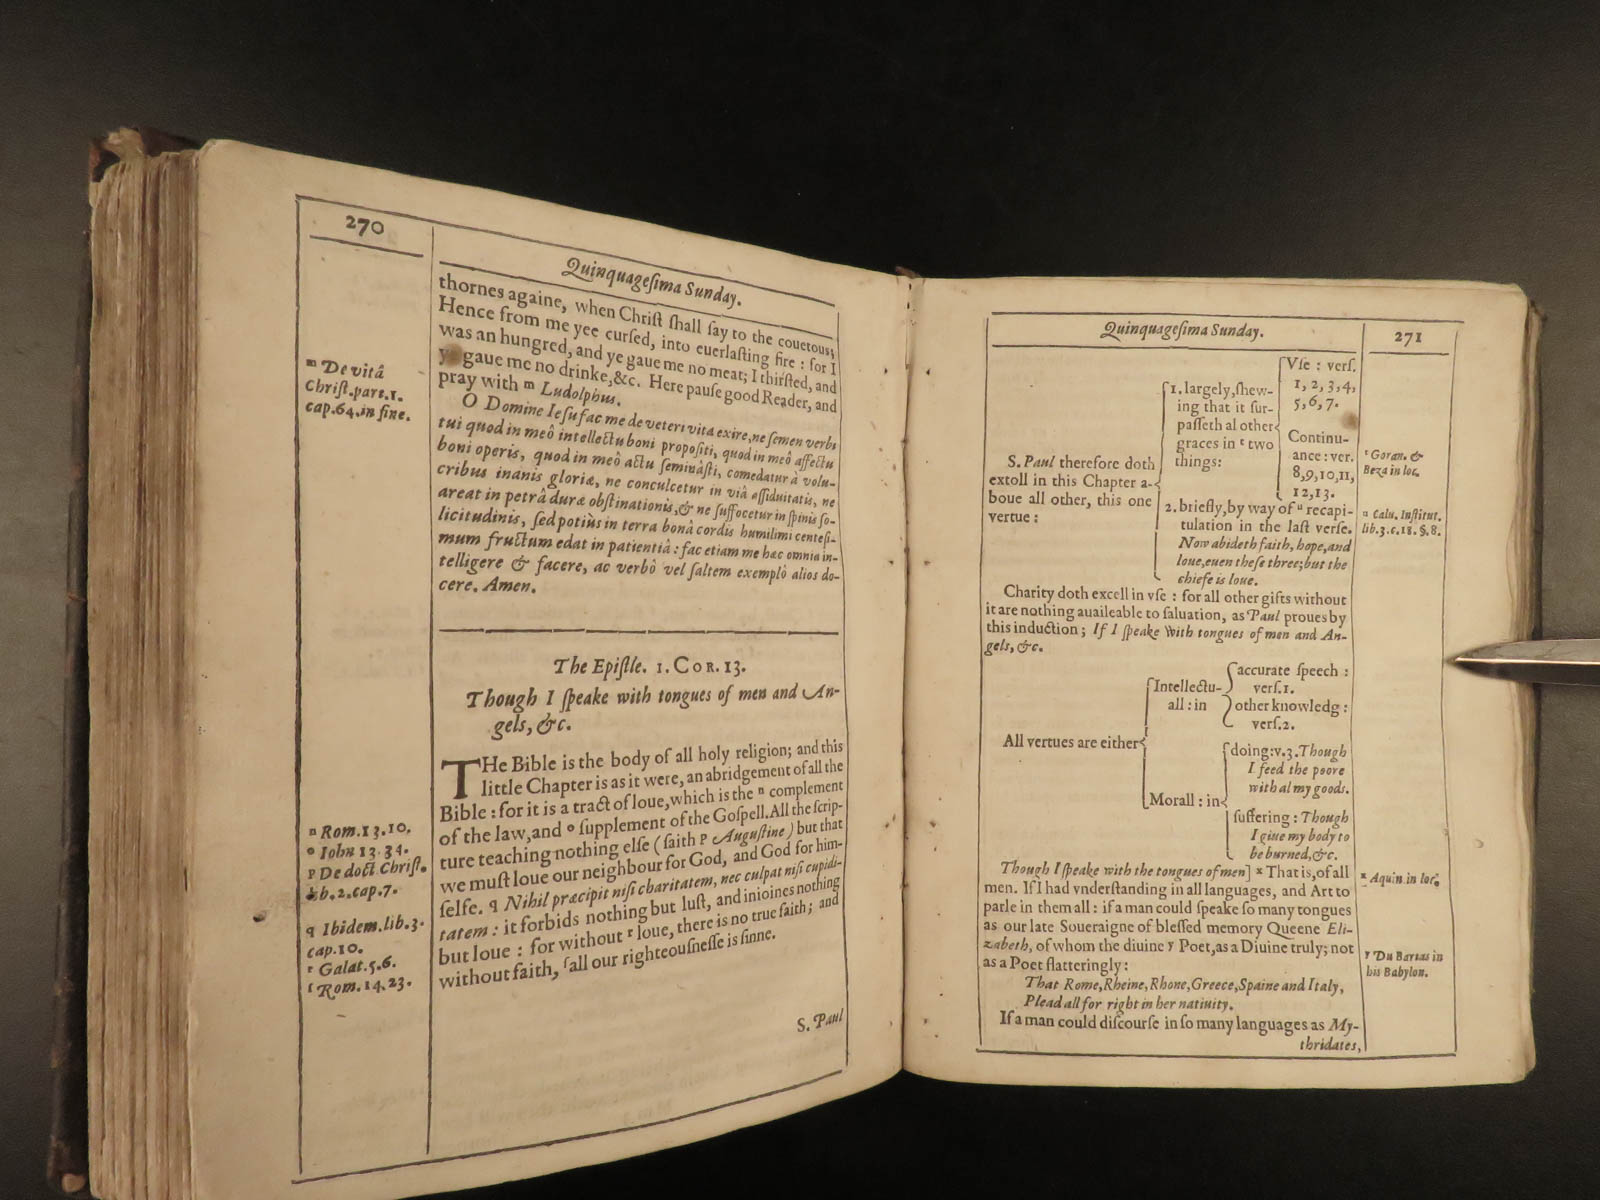 270
Quinquageſima Sunday.
thornes againe, when Chriſt ſhall ſay to the couetous;
Hence from me yee curſed, into euerlaſting fire : for I
was an hungred, and ye gaue me no meat; I thirſted, and
ye gaue me no drinke, &c. Here pauſe good Reader, and
pray with m Ludolphus.
O Domine Ieſu fac me de veteri vita exire, ne ſemen verbi
tui quod in meô intellectu boni propoſiti, quod in meô affectu
boni operis, quod in meô actu ſeminâſti, comedatur à volu-
cribus inanis gloriæ, ne conculcetur in viâ aſſiduitatis, ne
areat in petrâ duræ obſtinationis, & ne ſuffocetur in ſpinis ſo-
licitudinis, ſed potiùs in terra bonâ cordis humilimi centeſi-
mum fructum edat in patientiâ : fac etiam me hæc omnia in-
telligere & facere, ac verbô vel ſaltem exemplô alios do-
cere. Amen.
m De vitâ
Chriſt. part. 1.
cap. 64. in fine.
The Epiſtle. 1. COR. 13.
Though I ſpeake with tongues of men and An-
gels, &c.
THe Bible is the body of all holy religion; and this
little Chapter is as it were, an abridgement of all the
Bible : for it is a tract of loue, which is the n complement
of the law, and o ſupplement of the Goſpell. All the ſcrip-
ture teaching nothing elſe (ſaith p Auguſtine) but that
we muſt loue our neighbour for God, and God for him-
ſelfe. q Nihil præcipit niſi charitatem, nec culpat niſi cupidi-
tatem : it forbids nothing but luſt, and inioines nothing
but loue : for without r loue, there is no true faith; and
without faith, ſ all our righteouſneſſe is ſinne.
S. Paul
n Rom. 13. 10.
o Iohn 13. 34.
p De doct. Chriſt.
lib. 2. cap. 7.
q Ibidem. lib. 3.
cap. 10.
r Galat. 5. 6.
ſ Rom. 14. 23.
Quinquageſima Sunday.
271
S. Paul therefore doth
extoll in this Chapter a-
boue all other, this one
vertue :
1. largely, ſhew-
ing that it ſur-
paſſeth al other
graces in t two
things:
Vſe : verſ.
1, 2, 3, 4,
5, 6, 7.
Continu-
ance : ver.
8, 9, 10, 11,
12, 13.
2. briefly, by way of u recapi-
tulation in the laſt verſe.
Now abideth faith, hope, and
loue, euen theſe three; but the
chiefe is loue.
t Goran. &
Beza in loc.
u Calu. Inſtitut.
lib. 3. c. 18. §. 8.
Charity doth excell in vſe : for all other gifts without
it are nothing auaileable to ſaluation, as Paul proues by
this induction ; If I ſpeake with tongues of men and An-
gels, &c.
All vertues are either
Intellectu-
all : in
accurate ſpeech :
verſ. 1.
other knowledg :
verſ. 2.
Morall : in
doing : v. 3. Though
I feed the poore
with al my goods.
ſuffering : Though
I giue my body to
be burned, &c.
Though I ſpeake with the tongues of men] x That is, of all
men. If I had vnderſtanding in all languages, and Art to
parle in them all : if a man could ſpeake ſo many tongues
as our late Soueraigne of bleſſed memory Queene Eli-
zabeth, of whom the diuine y Poet, as a Diuine truly; not
as a Poet flatteringly :
That Rome, Rheine, Rhone, Greece, Spaine and Italy,
Plead all for right in her natiuity.
If a man could diſcourſe in ſo many languages as My-
thridates,
x Aquin. in loc.
y Du Bartas in
his Babylon.